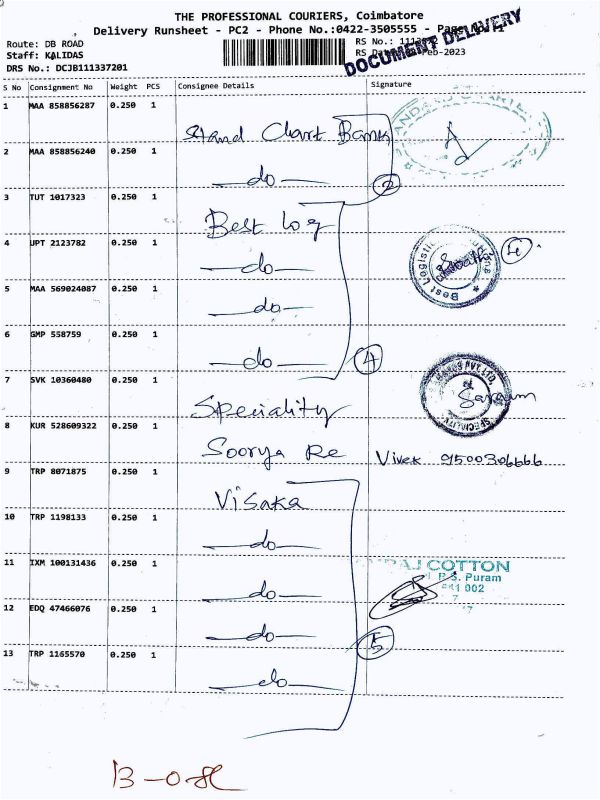 THE PROFESSIONAL COURIERS, Coimbatore
Delivery Runsheet - PC2 - Phone No.:0422-3505555 -
DOCUMENT DELIVERY
Route: DB ROAD
RS No.:
Staff: KALIDAS
RS
DRS No.: DCJB111337201
S No Consignment No Weight PCS Consignee Details Signature
1 MAA 858856287 0.250 1
Stand Chart Bank
2 MAA 858856240 0.250 1
do
2
3 TUT 1017323 0.250 1
Best Log
4 UPT 2123782 0.250 1
do
Best Logistic
4
5 MAA 569024087 0.250 1
do
6 GMP 558759 0.250 1
do
4
7 SVK 10360480 0.250 1
Speciality
SPECIALITY
8 KUR 528609322 0.250 1
Soorya Re Vivek 9500306666
9 TRP 8071875 0.250 1
Visaka
10 TRP 1198133 0.250 1
do
11 IXM 100131436 0.250 1
do
COTTON
R.S. Puram
12 EDQ 47466076 0.250 1
do
5
13 TRP 1165570 0.250 1
do